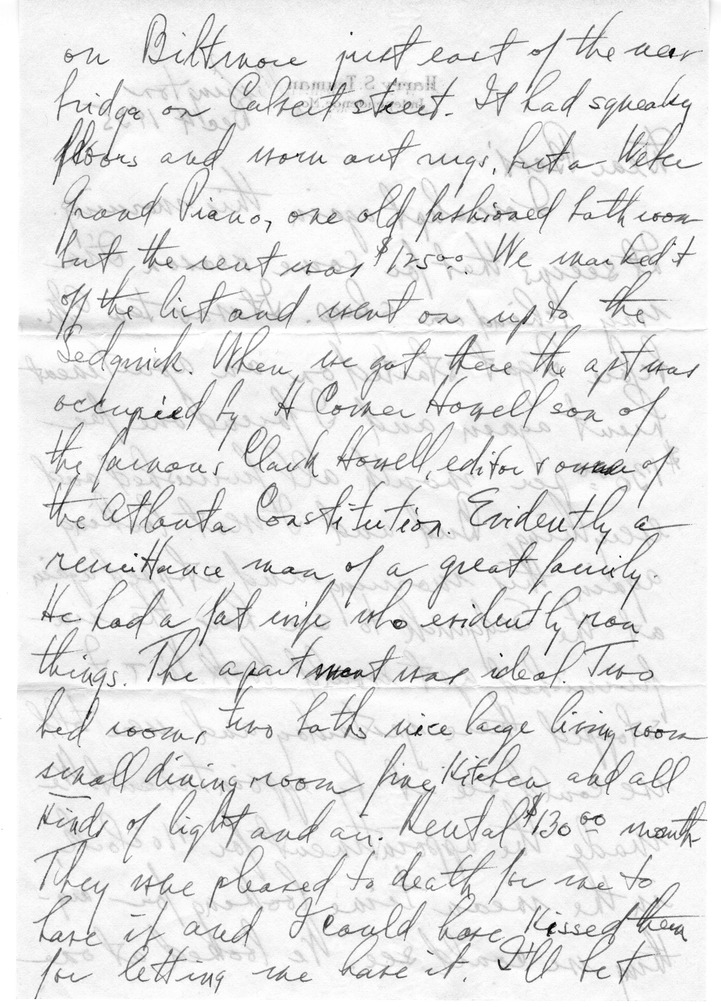 on Biltmore just east of the new
bridge on Calvert street. It had squeaky
floors and worn out rugs, but a Weber
Grand Piano, one old fashioned bath room
but the rent was $125.00. We marked it
off the list and went on up to the
Sedgwick. When we got there the apt was
occupied by H Comer Howell son of
the famous Clark Howell, editor & owner of
the Atlanta Constitution. Evidently a
remittance man of a great family.
He had a fat wife who evidently ran
things. The apartment was ideal. Two
bed rooms, two baths nice large living room
small dining room fine Kitchen and all
Kinds of light and air. Rental $130.00 month
They were pleased to death for me to
have it and I could have Kissed them
for letting me have it. I'll bet